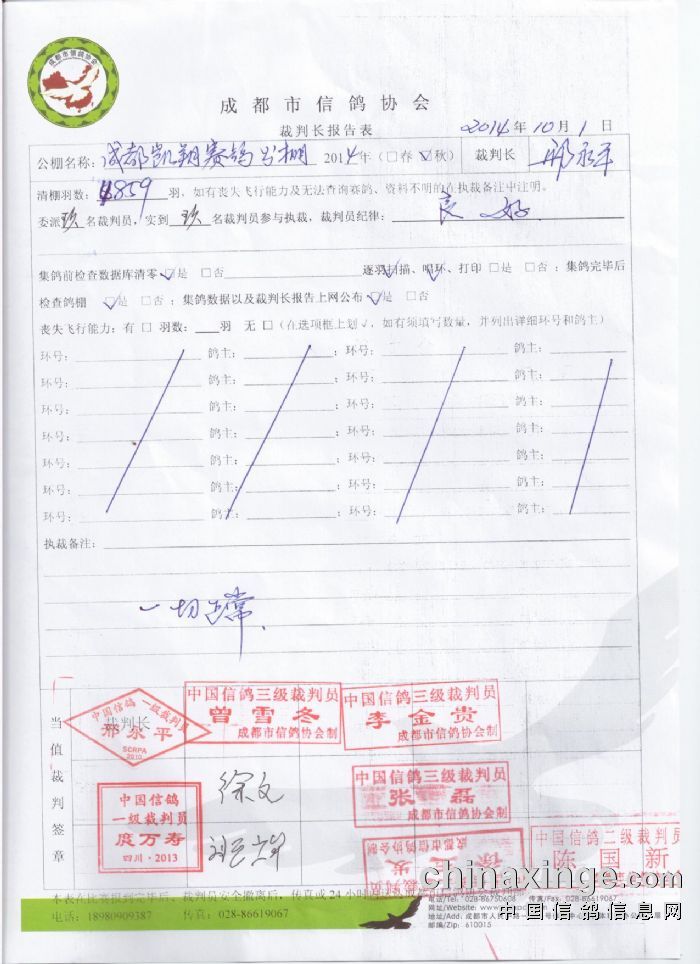 成都市信鸽协会
成都市信鸽协会
裁判长报告表 2014年10月1日
公棚名称：成都凯翔赛鸽公棚 2014年（□春☑秋） 裁判长 邢永平
清棚羽数：4859羽，如有丧失飞行能力及无法查询赛鸽、资料不明的在执裁备注中注明。
委派玖名裁判员，实到玖名裁判员参与执裁，裁判员纪律：良好
集鸽前检查数据库清零☑是 □否 逐羽扫描、唱环、打印□是 □否；集鸽完毕后
检查鸽棚 ☑是 □否；集鸽数据以及裁判长报告上网公布☑是 □否
丧失飞行能力：有 □ 羽数：羽 无 □（在选项框上划√，如有须填写数量，并列出详细环号和鸽主）
环号： 鸽主： ；环号： 鸽主：
环号： 鸽主： ；环号： 鸽主：
环号： 鸽主： ；环号： 鸽主：
环号： 鸽主： ；环号： 鸽主：
环号： 鸽主： ；环号： 鸽主：
环号： 鸽主： ；环号： 鸽主：
环号： 鸽主： ；环号： 鸽主：
执裁备注：
一切正常.
当值裁判签章
裁判长
中国信鸽一级裁判员
邢永平
SCRPA
2010
中国信鸽三级裁判员
曾雪冬
成都市信鸽协会制
中国信鸽三级裁判员
李金贵
成都市信鸽协会制
中国信鸽
一级裁判员
庹万寿
四川·2013
徐文
中国信鸽三级裁判员
张 磊
成都市信鸽协会制
中国信鸽三级裁判员
成都市信鸽协会制
中国信鸽二级裁判员
陈国新
本表在比赛报到完毕后、裁判员安全撤离后，传真或24小时
电话：18980909387 传真：028-86619067
电话/Tel: 028-86750608 传真/Fax: 028-86619067
网址/Website: www.
地址/Add: 成都市人民
邮编/Zip: 610015
chinaxinge.com
中国信鸽信息网